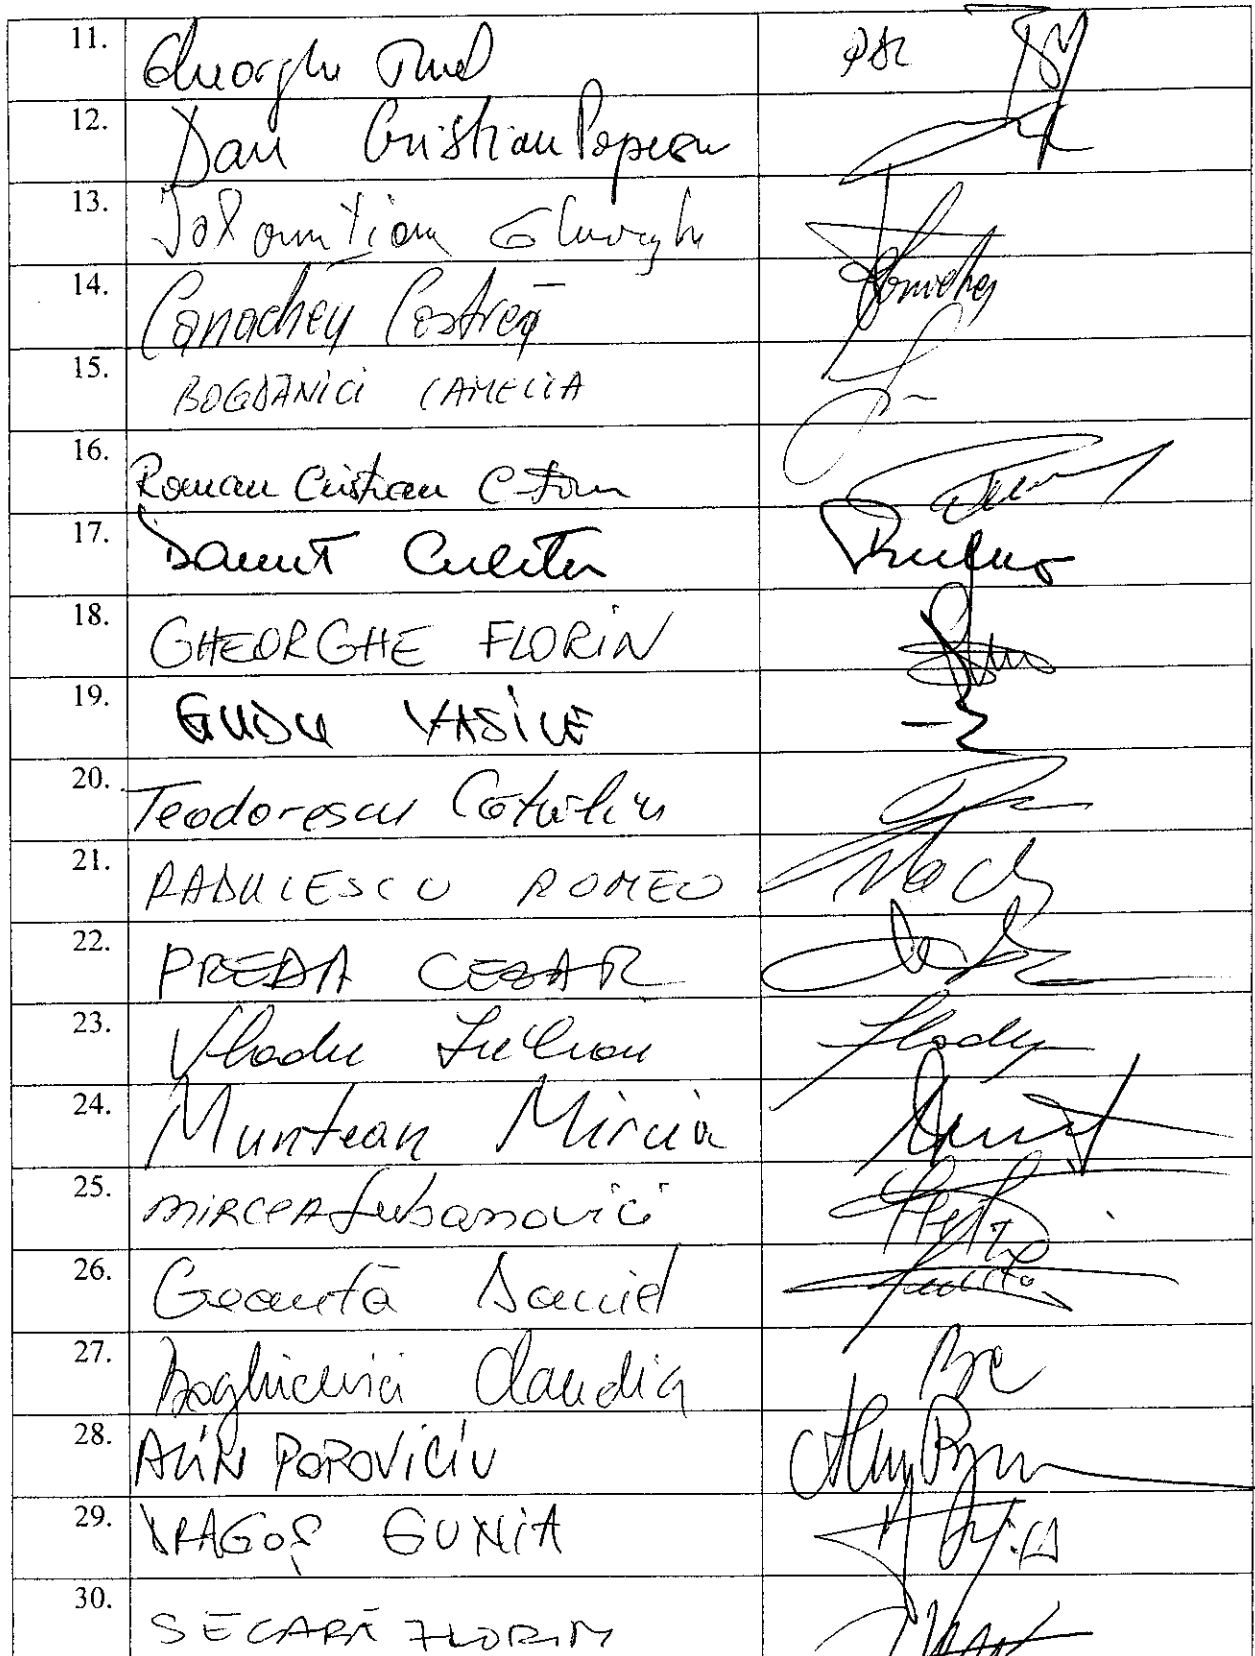 11. Gheorghe Tinel PDL
12. Dan Cristian Popescu
13. Ialomițianu Gheorghe
14. Canacheu Costică
15. BOGDĂNICI CAMELIA
16. Roman Cristian C-tin
17. Danut Culetu
18. GHEORGHE FLORIN
19. GUDU VASILE
20. Teodorescu Cătălin
21. RADULESCU ROMEO
22. PREDA CEZAR
23. Vladu Iulian
24. Muntean Mircia
25. MIRCEA Lubanovici
26. Geantă Daniel
27. Boghicevici Claudia
28. ALIN POPOVICIU
29. DRAGOȘ GUNIA
30. SECARĂ FLORIN